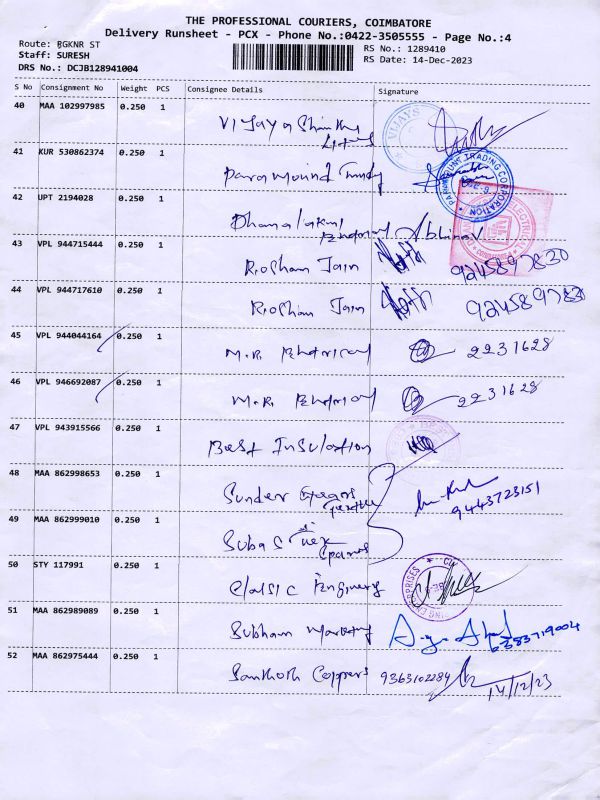 THE PROFESSIONAL COURIERS, COIMBATORE
Delivery Runsheet - PCX - Phone No.:0422-3505555 - Page No.:4
Route: RGKNR ST
RS No.: 1289410
Staff: SURESH
RS Date: 14-Dec-2023
DRS No.: DCJB128941004
S No Consignment No Weight PCS Consignee Details Signature
40 MAA 102997985 0.250 1
41 KUR 530862374 0.250 1 Paramound
42 UPT 2194028 0.250 1 Abhinav
43 VPL 944715444 0.250 1 Rosham Jain 9245897830
44 VPL 944717610 0.250 1 Rosham Jain 9245897830
45 VPL 944044164 0.250 1 M.R. 2231628
46 VPL 946692087 0.250 1 M.R. 2231628
47 VPL 943915566 0.250 1 Best Insulation
48 MAA 862998653 0.250 1 Sunder 9443723151
49 MAA 862999010 0.250 1 Subas
50 STY 117991 0.250 1 Classic
51 MAA 862989089 0.250 1 Subham Marketing 6383719004
52 MAA 862975444 0.250 1 Santhosh Coppers 9363102284
14/12/23